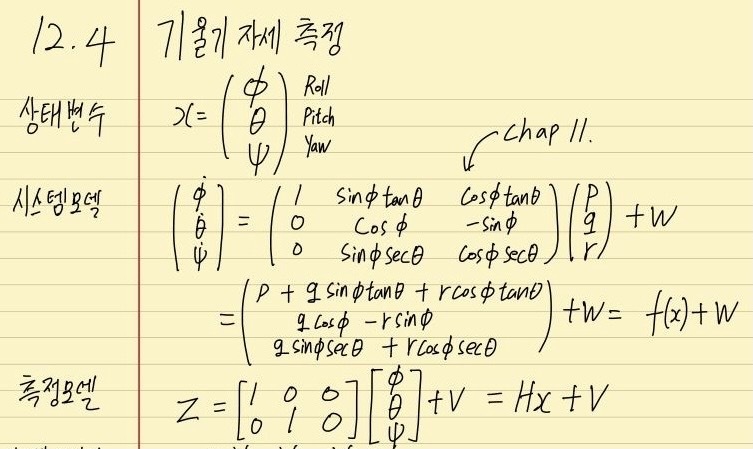 12.4 기울기 자세 측정
상태변수 x = ( ϕ Roll
θ Pitch
ψ ) Yaw
chap 11.
시스템모델 ( ϕ̇ θ̇ ψ̇ ) = ( 1 sinϕtanθ cosϕtanθ
0 cosϕ -sinϕ
0 sinϕsecθ cosϕsecθ ) ( p q r ) + W
= ( p + q sinϕtanθ + r cosϕtanθ
q cosϕ - r sinϕ
q sinϕsecθ + r cosϕsecθ ) + W = f(x) + W
측정모델 Z = [ 1 0 0
0 1 0 ] [ ϕ θ ψ ] + V = Hx + V